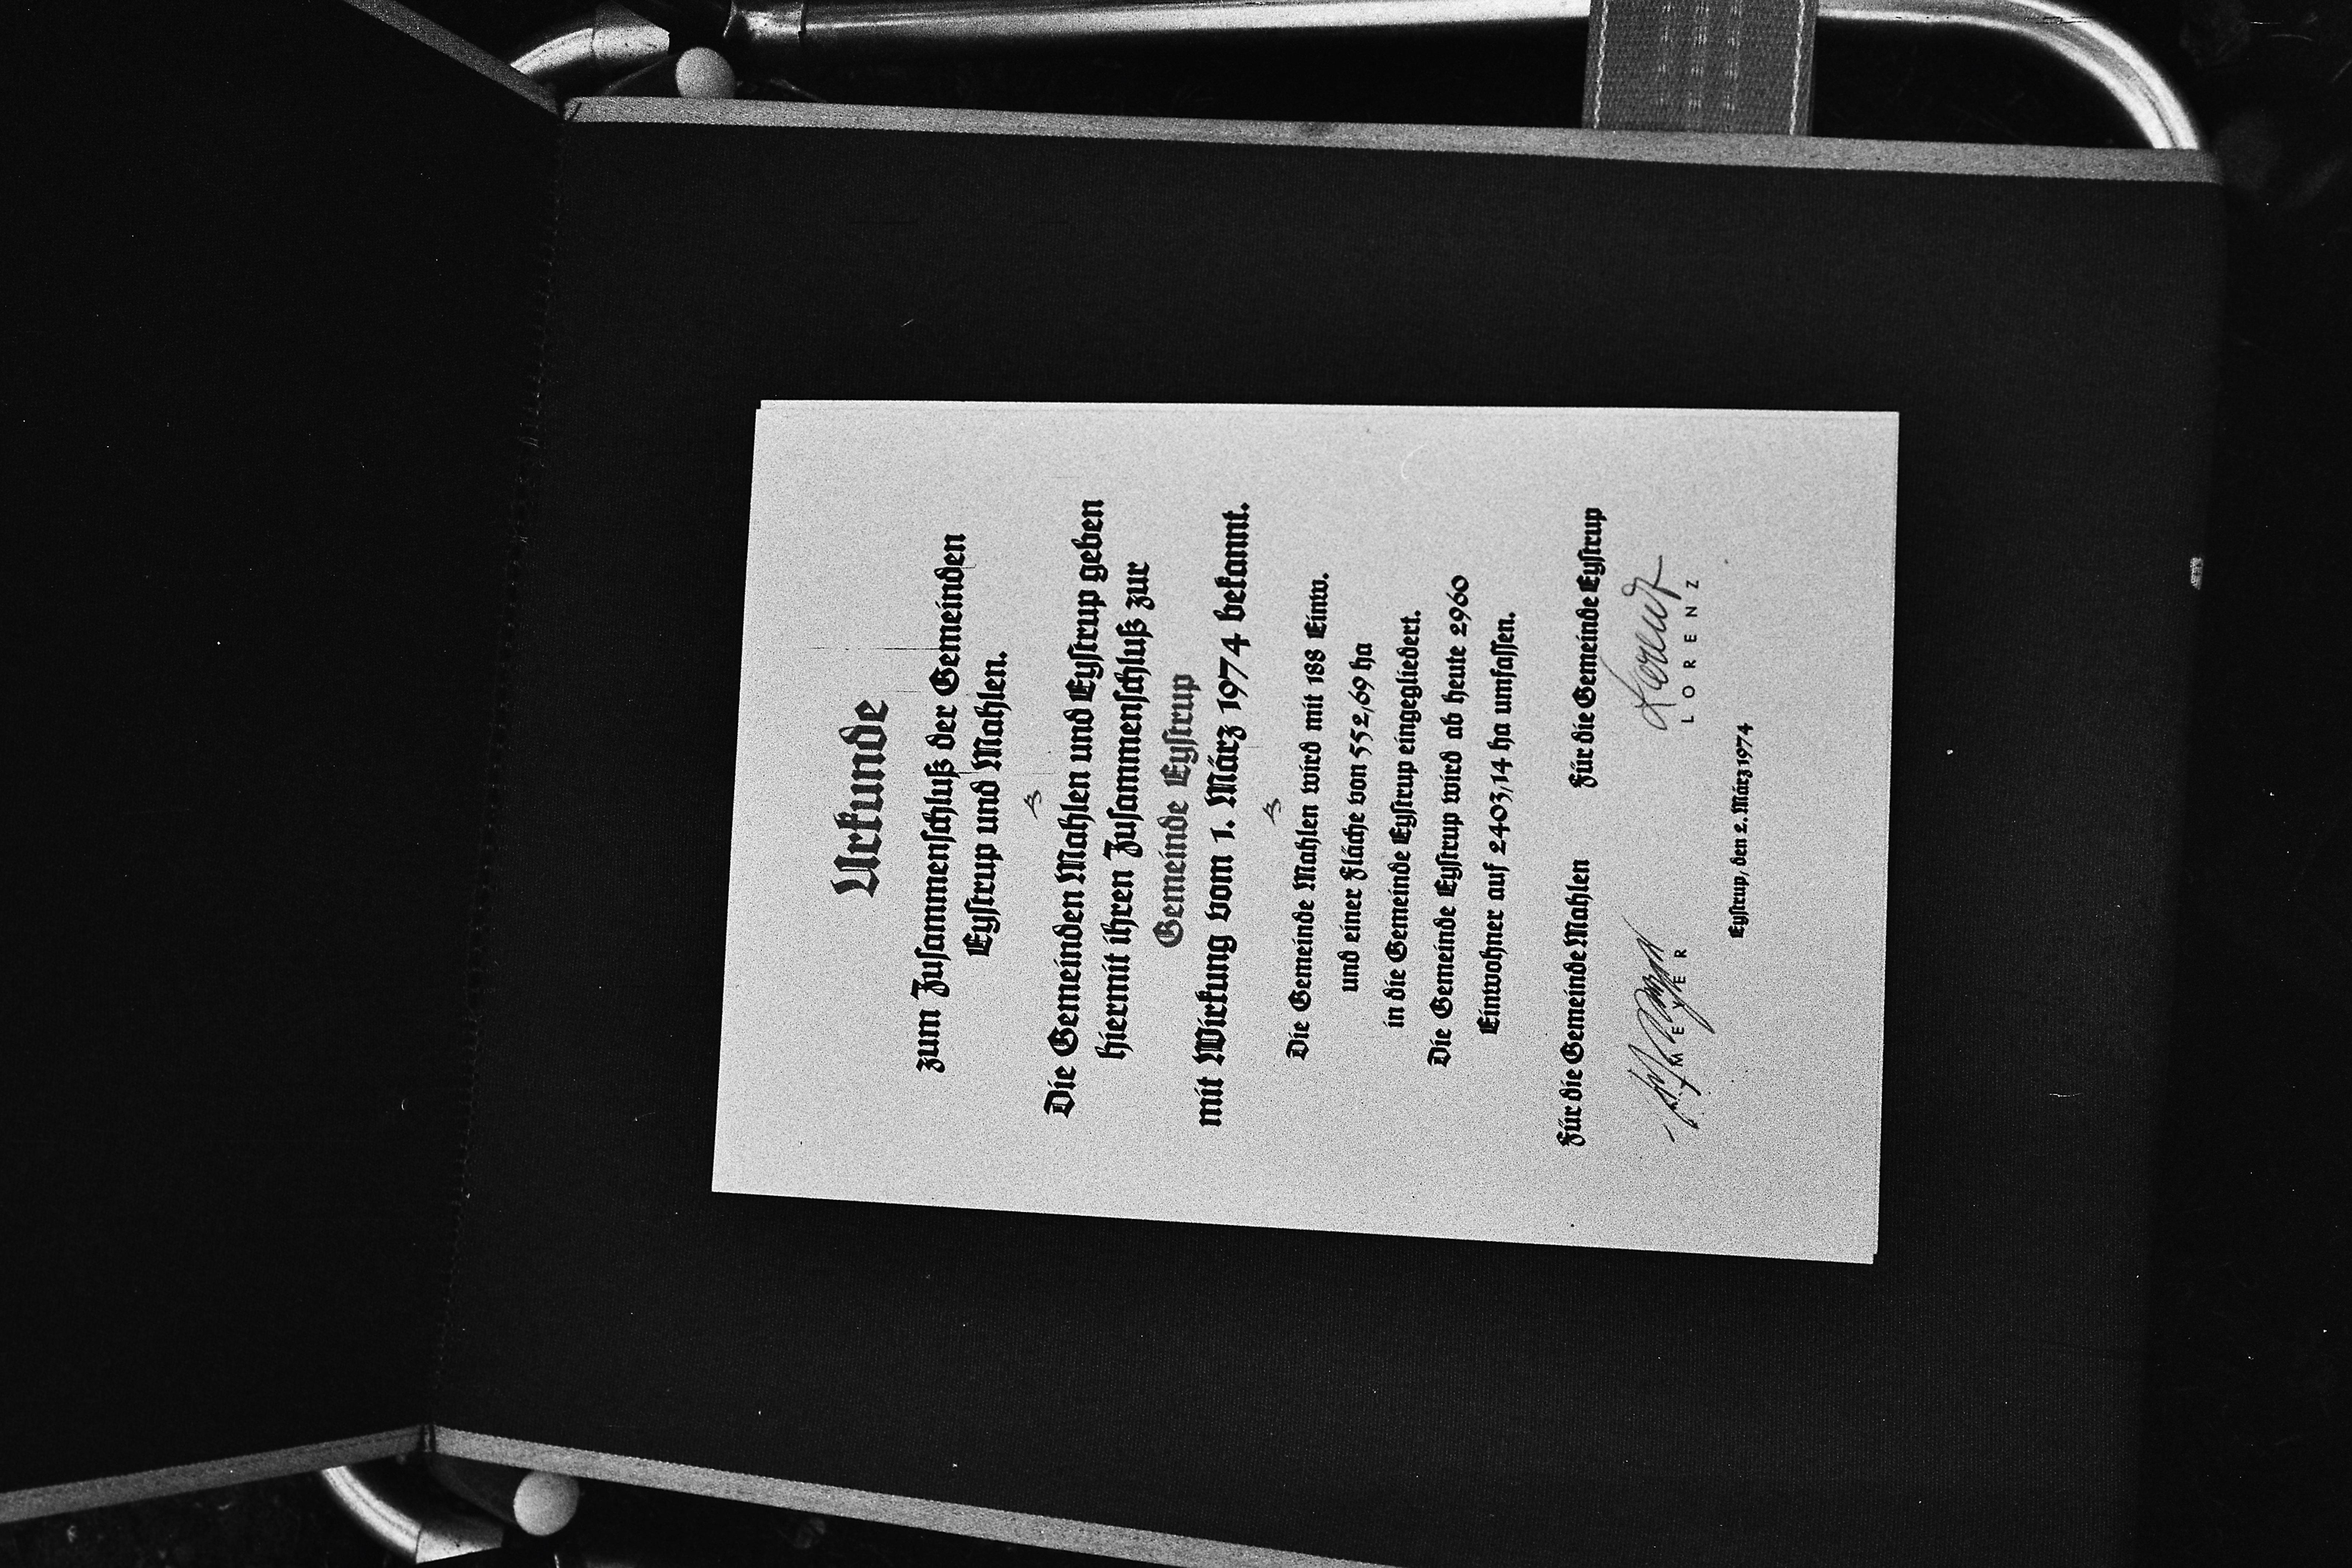 Urkunde
zum Zusammenschluß der Gemeinden
Eystrup und Mahlen.
Die Gemeinden Mahlen und Eystrup geben
hiermit ihren Zusammenschluß zur
Gemeinde Eystrup
mit Wirkung vom 1. März 1974 bekannt.
Die Gemeinde Mahlen wird mit 188 Einw.
und einer Fläche von 552,69 ha
in die Gemeinde Eystrup eingegliedert.
Die Gemeinde Eystrup wird ab heute 2960
Einwohner auf 2403,14 ha umfassen.
Für die Gemeinde Mahlen Für die Gemeinde Eystrup
Lorenz
MEYER LORENZ
Eystrup, den 2. März 1974